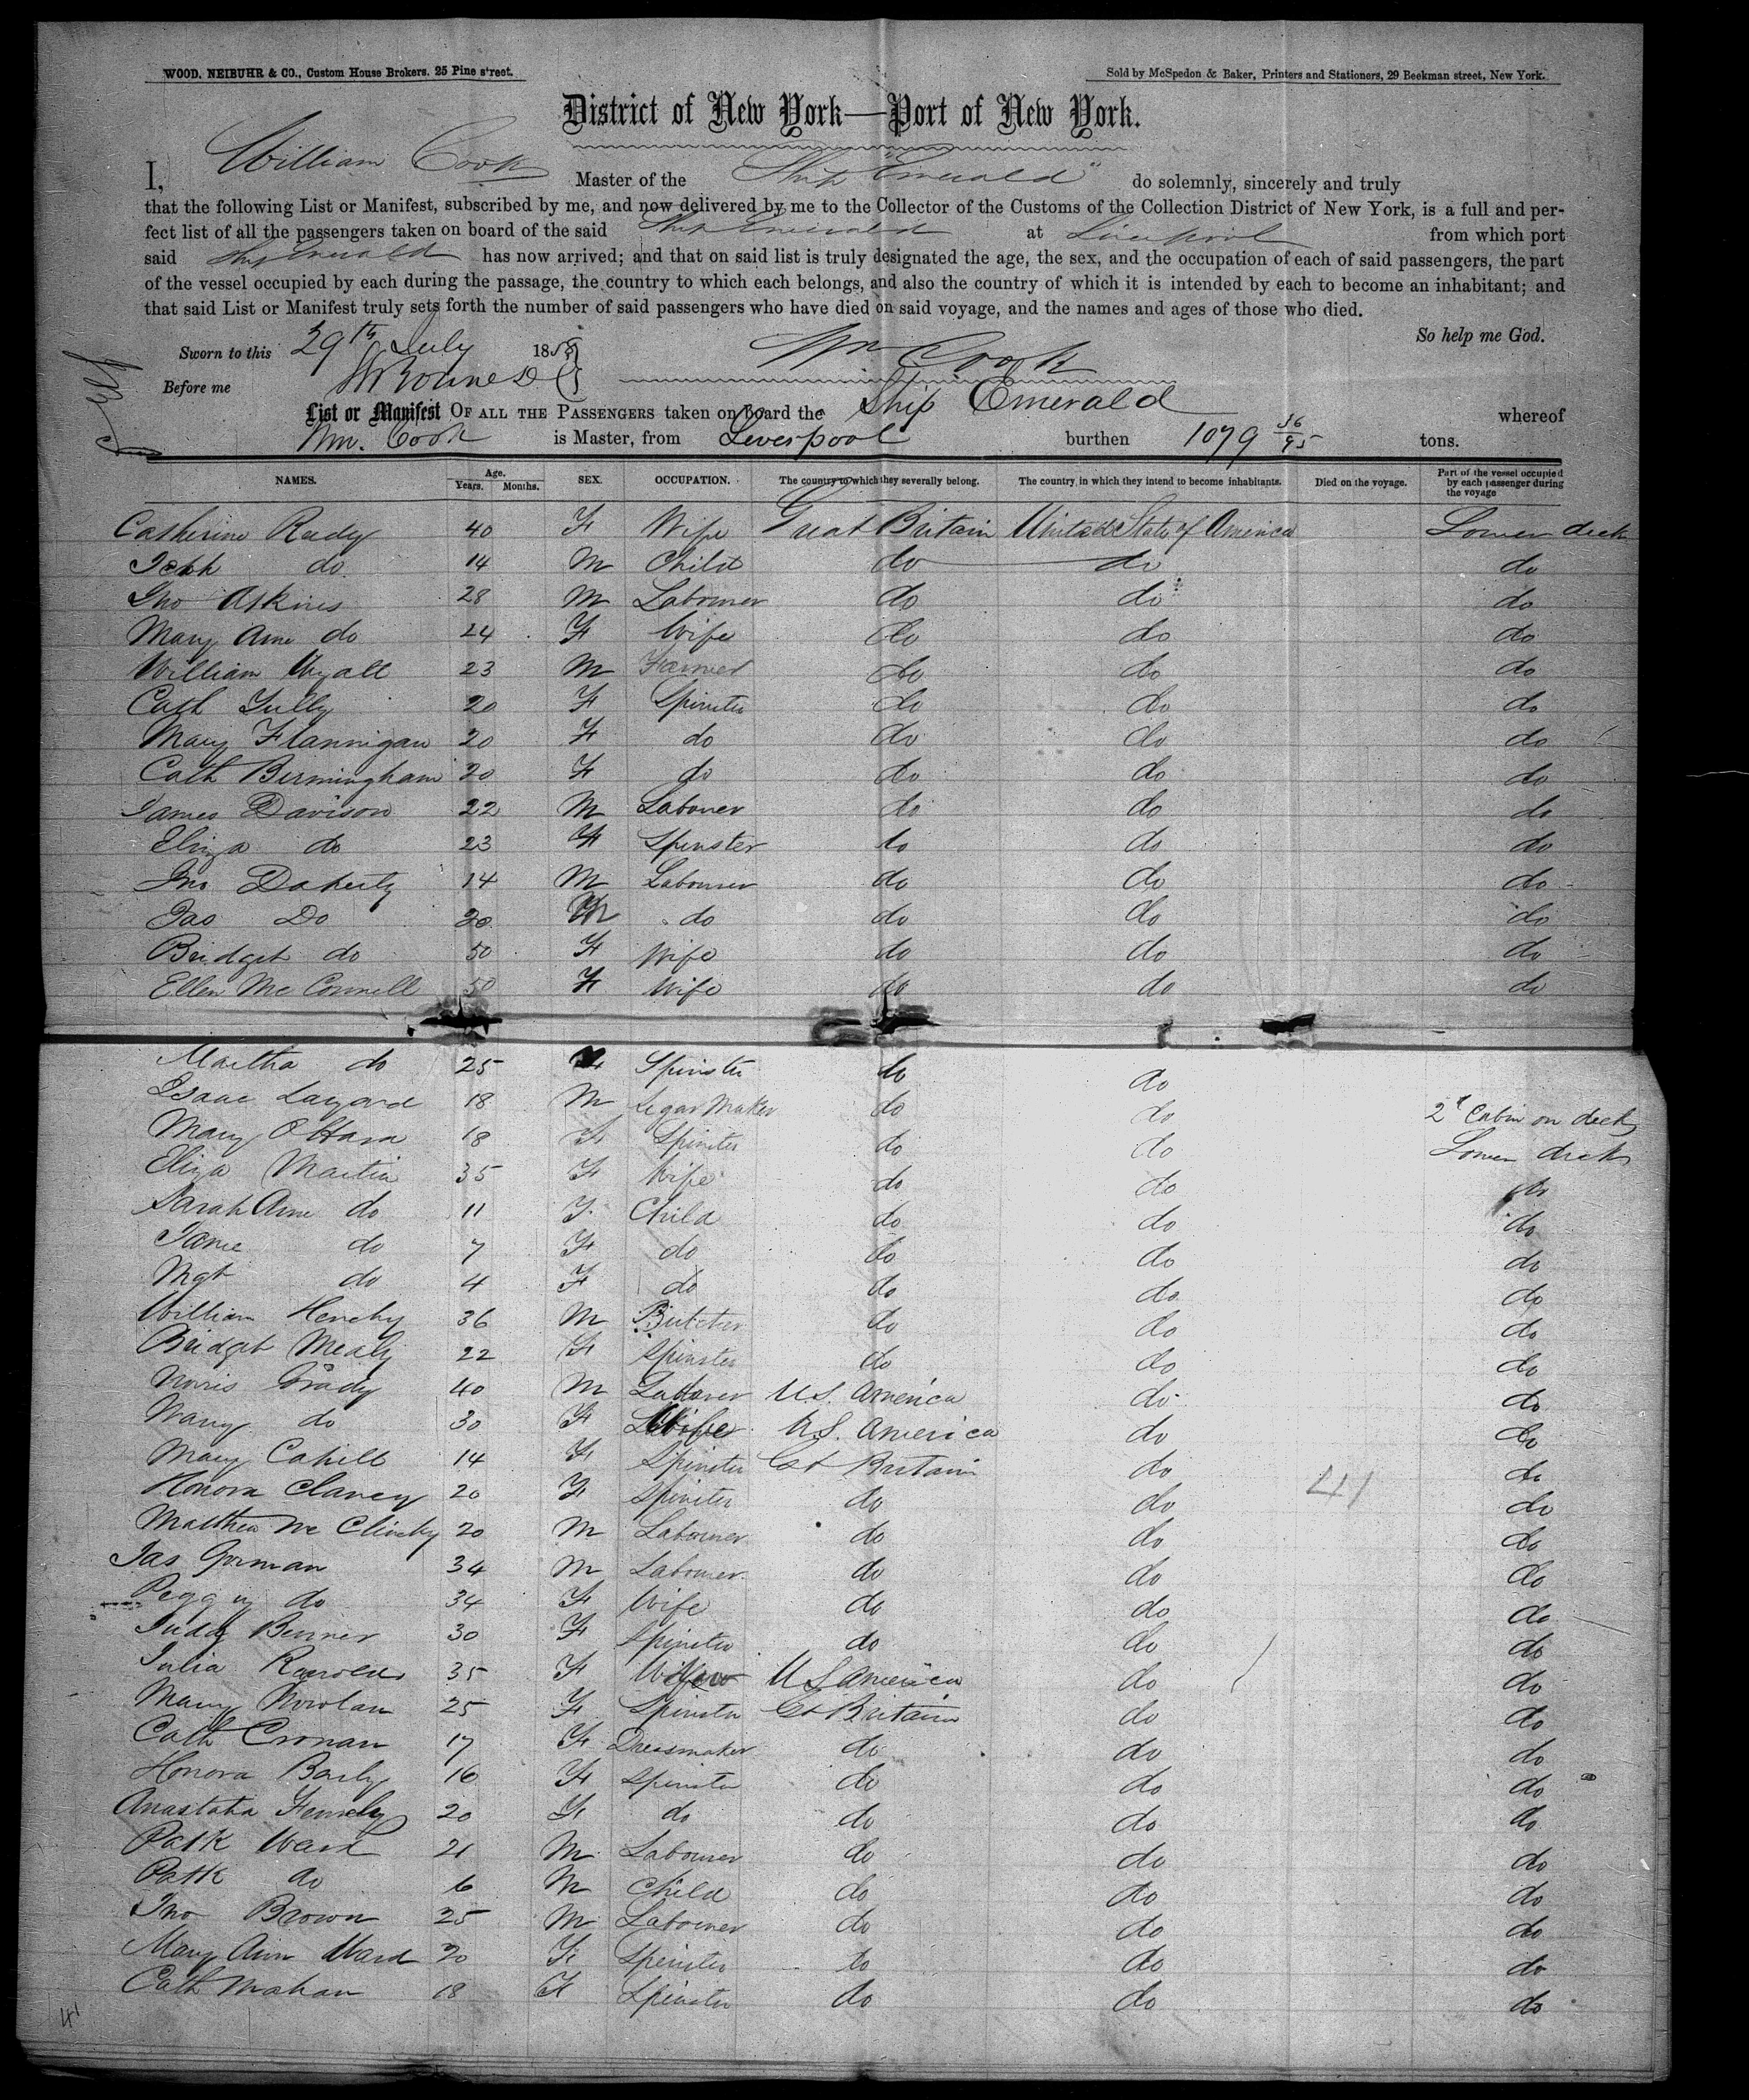 WOOD, NEIBUHR & CO., Custom House Brokers. 25 Pine street.
Sold by McSpedon & Baker, Printers and Stationers, 29 Beekman street, New York.
District of New York—Port of New York.
I, William Cook Master of the Ship "Emerald" do solemnly, sincerely and truly
that the following List or Manifest, subscribed by me, and now delivered by me to the Collector of the Customs of the Collection District of New York, is a full and per-
fect list of all the passengers taken on board of the said Ship Emerald at Liverpool from which port
said Ship Emerald has now arrived; and that on said list is truly designated the age, the sex, and the occupation of each of said passengers, the part
of the vessel occupied by each during the passage, the country to which each belongs, and also the country of which it is intended by each to become an inhabitant; and
that said List or Manifest truly sets forth the number of said passengers who have died on said voyage, and the names and ages of those who died.
So help me God.
Sworn to this 29th July 1858
Wm Cook
Before me
List or Manifest OF ALL THE PASSENGERS taken on board the Ship Emerald whereof
Wm. Cook is Master, from Liverpool burthen 1079 36/95 tons.
NAMES. Age. Years. Months. SEX. OCCUPATION. The country to which they severally belong. The country in which they intend to become inhabitants. Died on the voyage. Part of the vessel occupied by each passenger during the voyage
Catherine Rudy 40 F Wife Great Britain United State of America Lower deck
do 14 M Child do do do
Jno Askins 28 M Labourer do do do
Mary Ann do 24 F Wife do do do
William Wyall 23 M Farmer do do do
Cath Tully 20 F Spinster do do do
Mary Flannigan 20 F do do do do
Cath Birmingham 20 F do do do do
James Davison 22 M Labourer do do do
Eliza do 23 F Spinster do do do
Jno Doherty 14 M Labourer do do do
Jas Do 20 M do do do do
Bridget do 50 F Wife do do do
Ellen McConnell 50 F Wife do do do
Martha do 25 F Spinster do do
Isaac Layard 18 M Segar Maker do do 2d Cabin on deck
Mary O'Hara 18 F Spinster do do Lower deck
Eliza Martin 35 F Wife do do do
Sarah Ann do 11 F Child do do do
Jane do 7 F do do do do
Mgt do 4 F do do do do
William Henchy 36 M Butcher do do do
Bridget Mealy 22 F Spinster do do do
Norris Grady 40 M Labourer U.S. America do do
do 30 F Wife U.S. America do do
Mary Cahill 14 F Spinster Gt Britain do do
Honora Clancy 20 F Spinster do do do
41
Matthew McClinchy 20 M Labourer do do do
Jas Gorman 34 M Labourer do do do
Peggy do 34 F Wife do do do
Judy 30 F Spinster do do do
Julia 35 F Widow U.S. America do do
Mary Nowlan 25 F Spinster Gt Britain do do
Cath Cronan 17 F Dressmaker do do do
Honora 16 F Spinster do do do
Anastatia 20 F do do do do
Patk Ward 21 M Labourer do do do
Patk do 6 M Child do do do
Jno Brown 25 M Labourer do do do
Mary Ann Ward 20 F Spinster do do do
Cath Mahan 18 F Spinster do do do
41